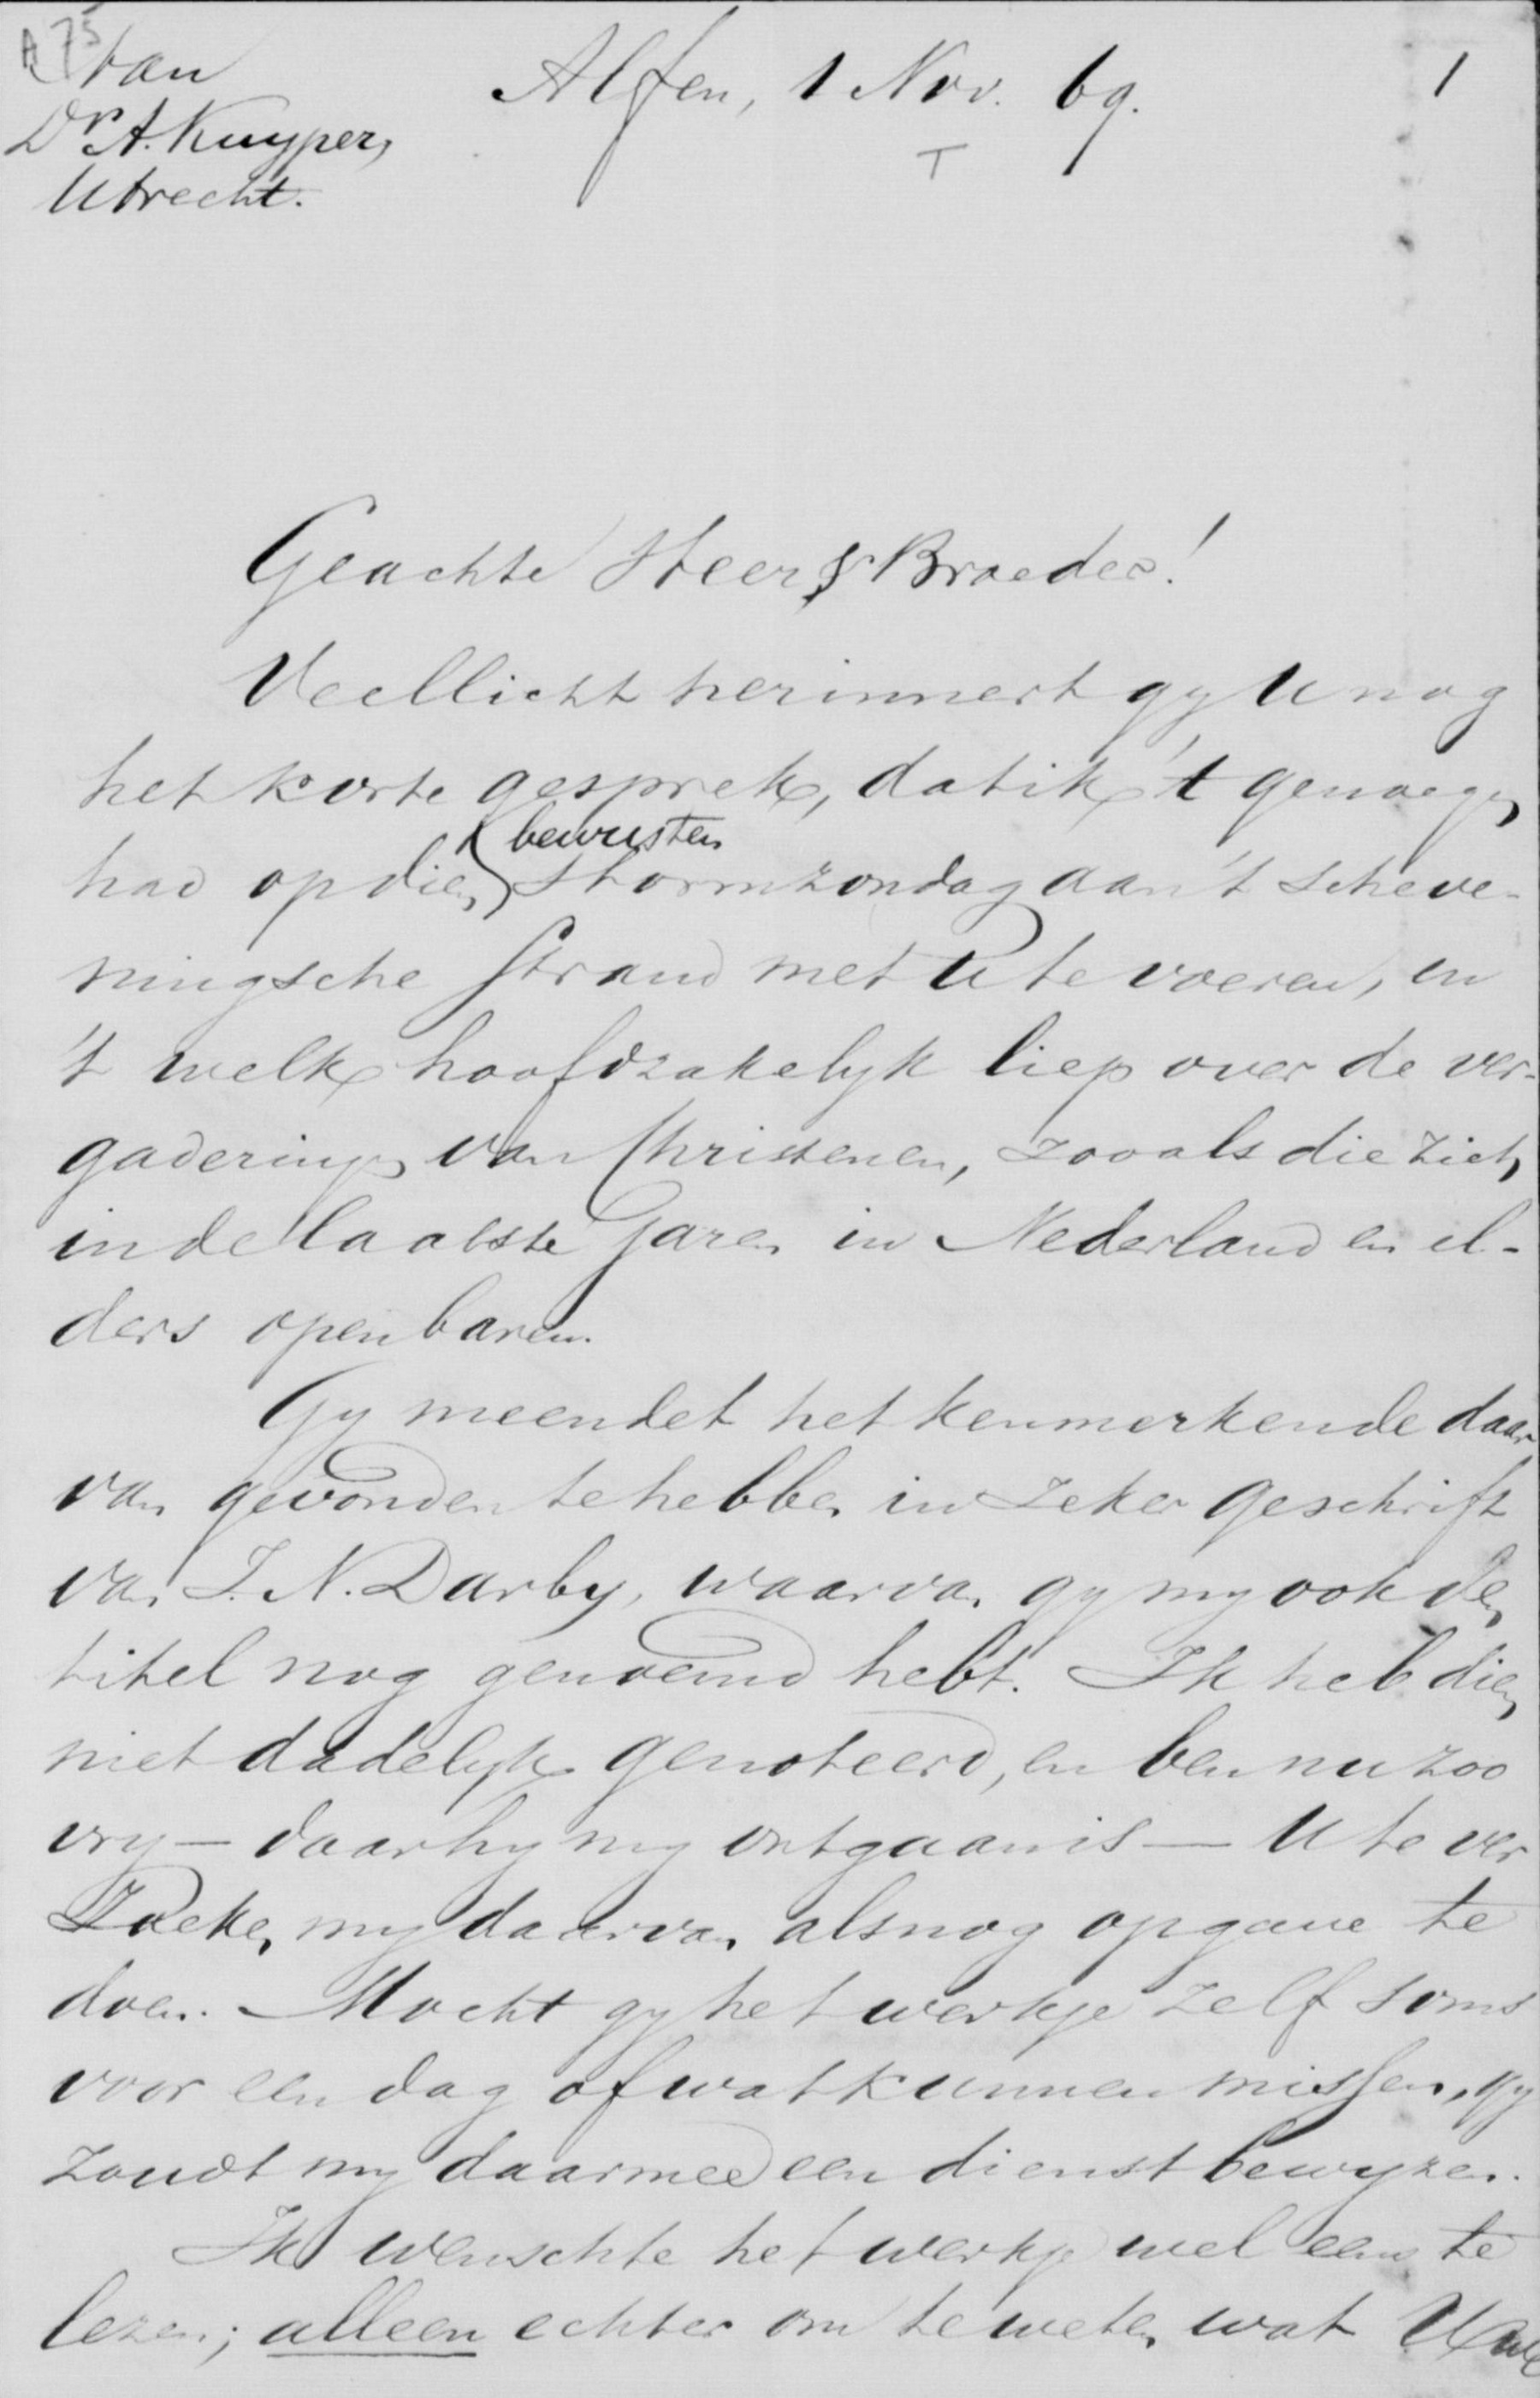 A 75
1
aan
Dr A. Kuyper,
Utrecht.
Alfen, 1 Nov. 69.
T
Geachte Heer & Broeder!
Veellicht herinnert gy U nog
het korte gesprek, dat ik 't genoegen
bewusten
had op dien stormzondag aan 't Scheve-
ningsche Strand met U te voeren, en
't welk hoofdzakelyk liep over de ver-
gadering van Christenen, zooals die zich
in de laatste Jaren in Nederland en el-
ders openbaren.
Gy meendet het kenmerkende daar
van gevonden te hebben in zeker geschrift
van J. N. Darby, waarvan gy my ook den
titel nog genoemd hebt. Ik heb dien
niet dadelyk genoteerd, en ben nu zoo
vry — daar hy my ontgaan is — U te ver
zoeken my daarvan alsnog opgave te
doen. Mocht gy het werkje zelf soms
voor een dag of wat kunnen missen, gy
zoudt my daarmee een dienst bewyzen.
Ik wenschte het werkje wel eens te
lezen; alleen echter om te weten wat Uwe